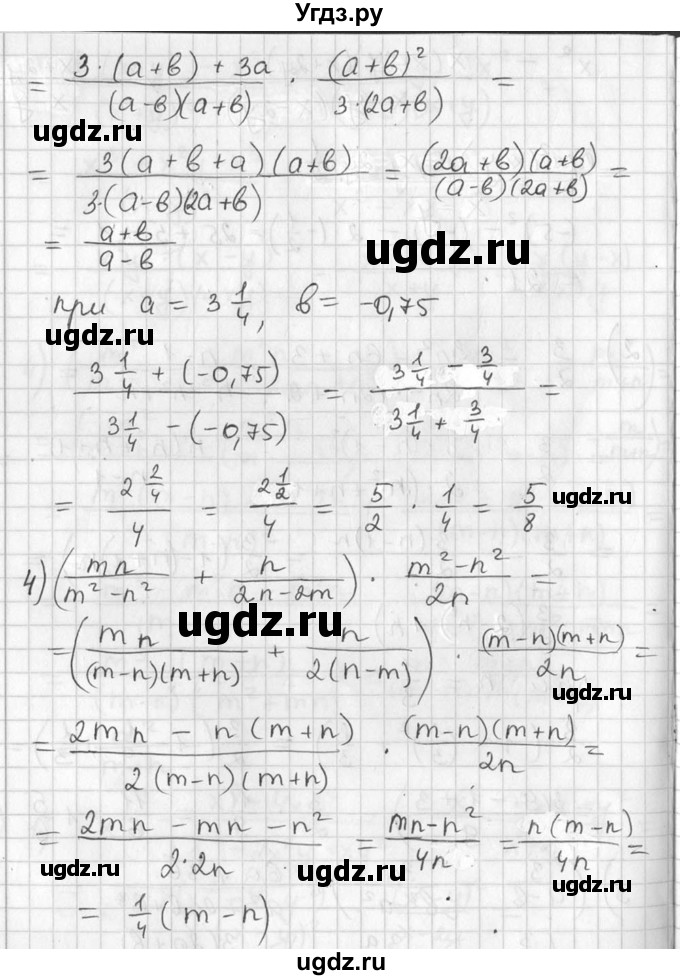 Угдз.ру
= (3·(a+в) + 3a)/((a-в)(a+в)) · (a+в)²/(3·(2a+в)) =
ugdz.ru
= 3(a+в+a)(a+в)/(3·(a-в)(2a+в)) = (2a+в)(a+в)/((a-в)(2a+в)) =
= (a+в)/(a-в)
ugdz.ru
при a = 3 1/4, в = -0,75
ugdz.ru
(3 1/4 + (-0,75))/(3 1/4 - (-0,75)) = (3 1/4 - 3/4)/(3 1/4 + 3/4) =
= (2 2/4)/4 = (2 1/2)/4 = 5/2 · 1/4 = 5/8
ugdz.ru
4) (mn/(m²-n²) + n/(2n-2m)) · (m²-n²)/2n =
ugdz.ru
= (mn/((m-n)(m+n)) + n/(2(n-m))) · (m-n)(m+n)/2n =
= (2mn - n(m+n))/(2(m-n)(m+n)) · (m-n)(m+n)/2n =
= (2mn - mn - n²)/(2·2n) = (mn-n²)/4n = n(m-n)/4n =
ugdz.ru ugdz.ru ugdz.ru
= 1/4 (m-n)
ugdz.ru ugdz.ru